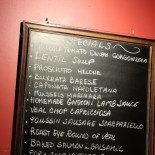 SPECIALS
TOMATO ONION GORGONZOLA
LENTIL SOUP
PROSCIUTTO MELONE
BURRATA BARESE
CAPONATA NAPOLETANA
MUSSELS MARINARA
HOMEMADE GNOCCHI LAMB SAUCE
VEAL CHOP CAPRICCIOSA
SAUSAGE SCARPARIELLO
ROAST EYE ROUND OF VEAL
BAKED SALMON & BALSAMIC